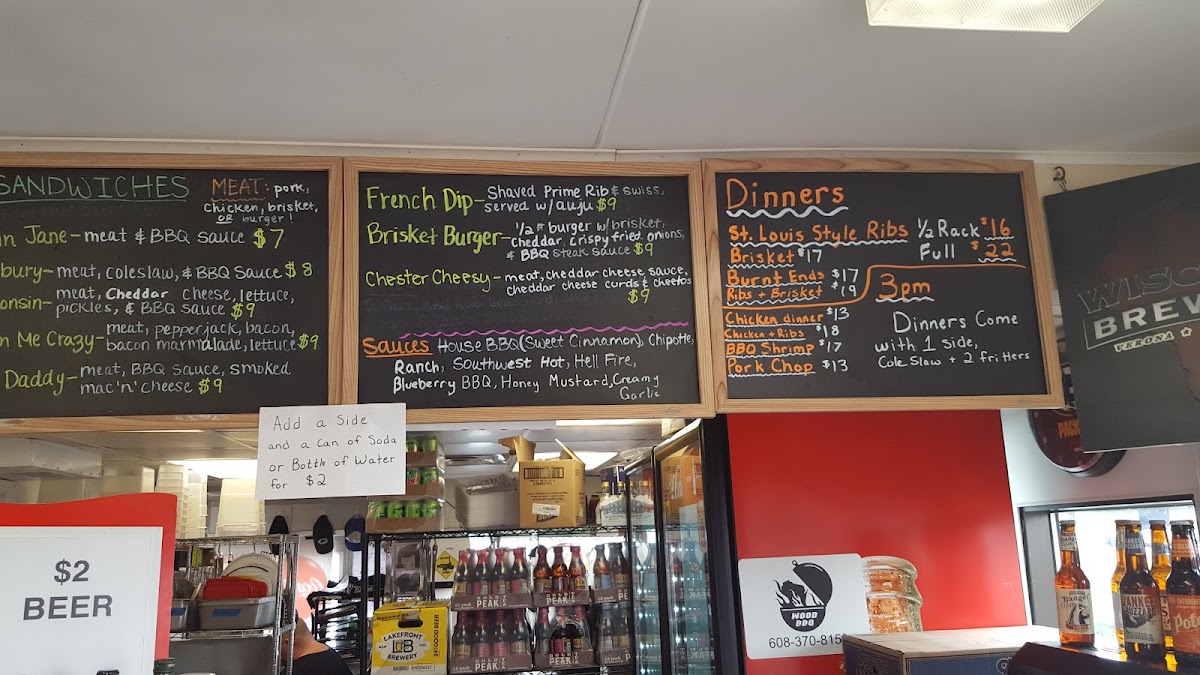 SANDWICHES
MEAT: pork,
chicken, brisket,
OR burger!
Jane - meat & BBQ sauce $7
bury - meat, coleslaw, & BBQ sauce $8
onsin - meat, Cheddar cheese, lettuce,
pickles, & BBQ sauce $9
n Me Crazy - meat, pepperjack, bacon,
bacon marmalade, lettuce $9
Daddy - meat, BBQ sauce, smoked
mac'n'cheese $9
French Dip - Shaved Prime Rib & swiss,
served w/auju $9
Brisket Burger - 1/2 # burger w/brisket,
cheddar, crispy fried onions,
& BBQ steak sauce $9
Chester Cheesy - meat, cheddar cheese sauce,
cheddar cheese curds & cheetos
$9
Sauces House BBQ (Sweet Cinnamon), Chipotle,
Ranch, Southwest Hot, Hell Fire,
Blueberry BBQ, Honey Mustard, Creamy
Garlic
Dinners
St. Louis Style Ribs 1/2 Rack $16
Full $22
Brisket $17
Burnt Ends $17
Ribs + Brisket $19
3pm
Chicken dinner $13
Chicken + Ribs $18
BBQ Shrimp $17
Pork Chop $13
Dinners Come
with 1 side,
Cole Slaw + 2 fritters
Add a Side
and a Can of Soda
or Bottle of Water
for $2
$2
BEER
LAKEFRONT
BREWERY
PEAK
WOOD
DOG
608-370-815
WISC
BREW
VERONA
PACK